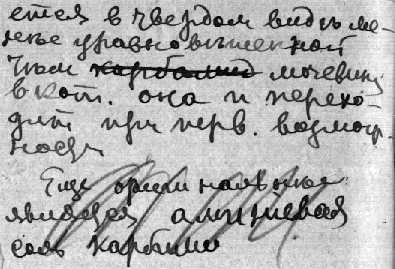 ется в твердом виде ме-
нее уравновешенной
чем карбамид мочевины
в кот. она и перехо-
дит при перв. возмож.
ности
Еще оригинальнее
является аммиевая
соль карбами